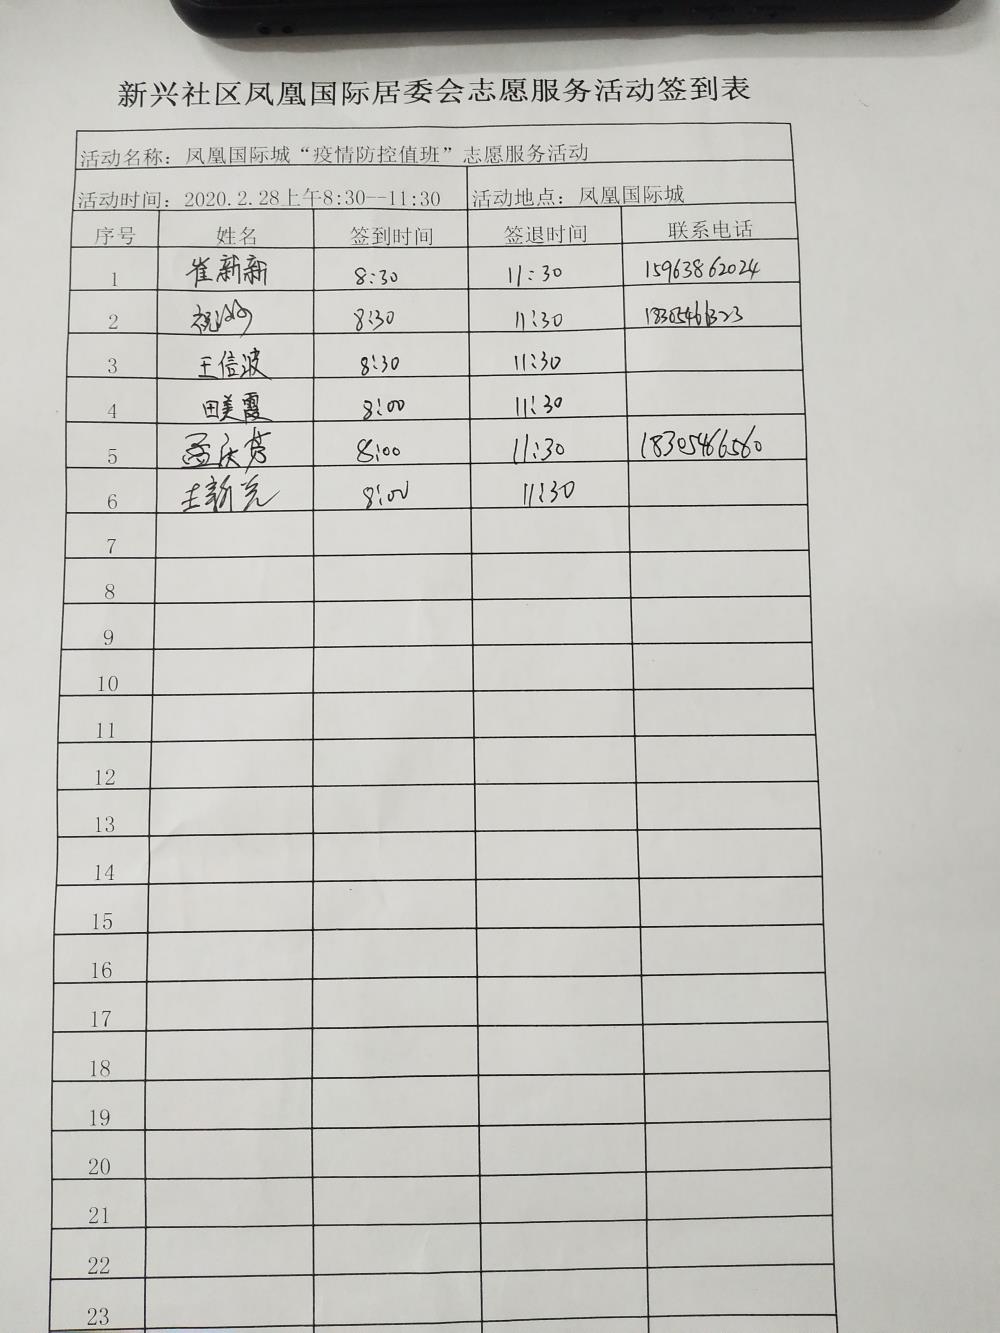 新兴社区凤凰国际居委会志愿服务活动签到表
活动名称：凤凰国际城“疫情防控值班”志愿服务活动
活动时间：2020.2.28上午8:30--11:30 活动地点：凤凰国际城
序号 姓名 签到时间 签退时间 联系电话
1 崔新新 8:30 11:30 15963862024
2 祝 8:30 11:30
3 王信波 8:30 11:30
4 田美霞 8:00 11:30
5 孟庆芳 8:00 11:30 18305466560
6 王新亮 8:00 11:30
7
8
9
10
11
12
13
14
15
16
17
18
19
20
21
22
23